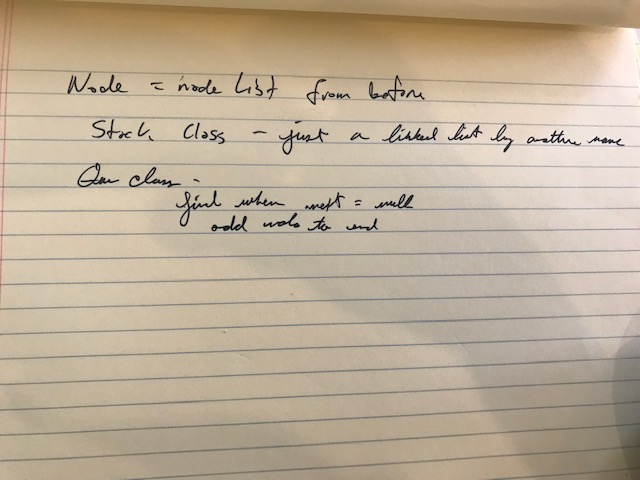 Node = node list from before
Stack Class - just a linked list by another name
Que class -
find when next = null
add node to end